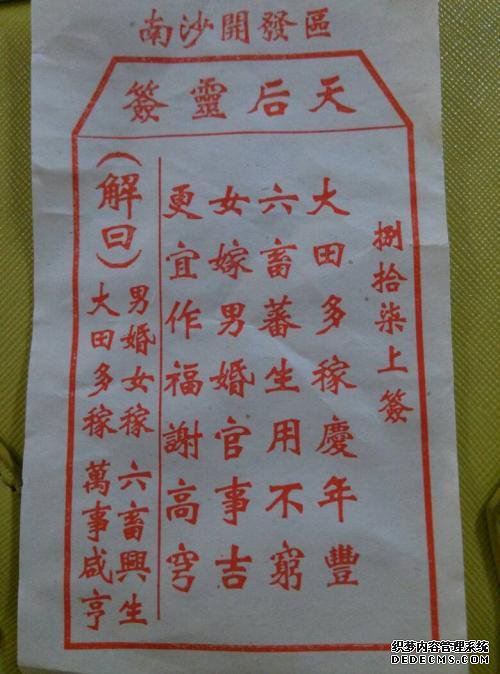 南沙開發區
天后靈簽
捌拾柒上簽
大田多稼慶年豐
六畜蕃生用不窮
女嫁男婚官事吉
更宜作福謝高穹
(解曰)
男婚女稼 六畜興生
大田多稼 萬事咸亨
织梦内容管理系统
DEDECMS.COM